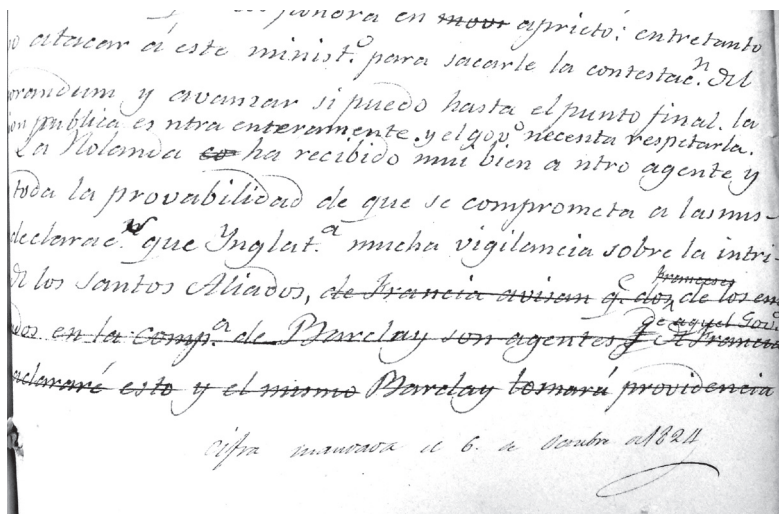 pondra en movi aprieto: entretanto
o atacar á este minist.º para sacarle la contestac.n del
orandum y avanzar si puedo hasta el punto final. la
ion publica es ntra enteramente. y el gov.º necesita respetarla.
La Holanda co ha recibido mui bien a ntro agente y
toda la provabilidad de que se comprometa a las mis-
declarac.s que Ynglat.a mucha vigilancia sobre la intri-
de los Santos Aliados, de Francia avisan q.e dos franceses de los em
ados en la comp.a de Barclay son agentes de aquel Gov.º de Francia
aclararé esto y el mismo Barclay tomará providencia
Cifra mandada el 6. de Octubre de 1824